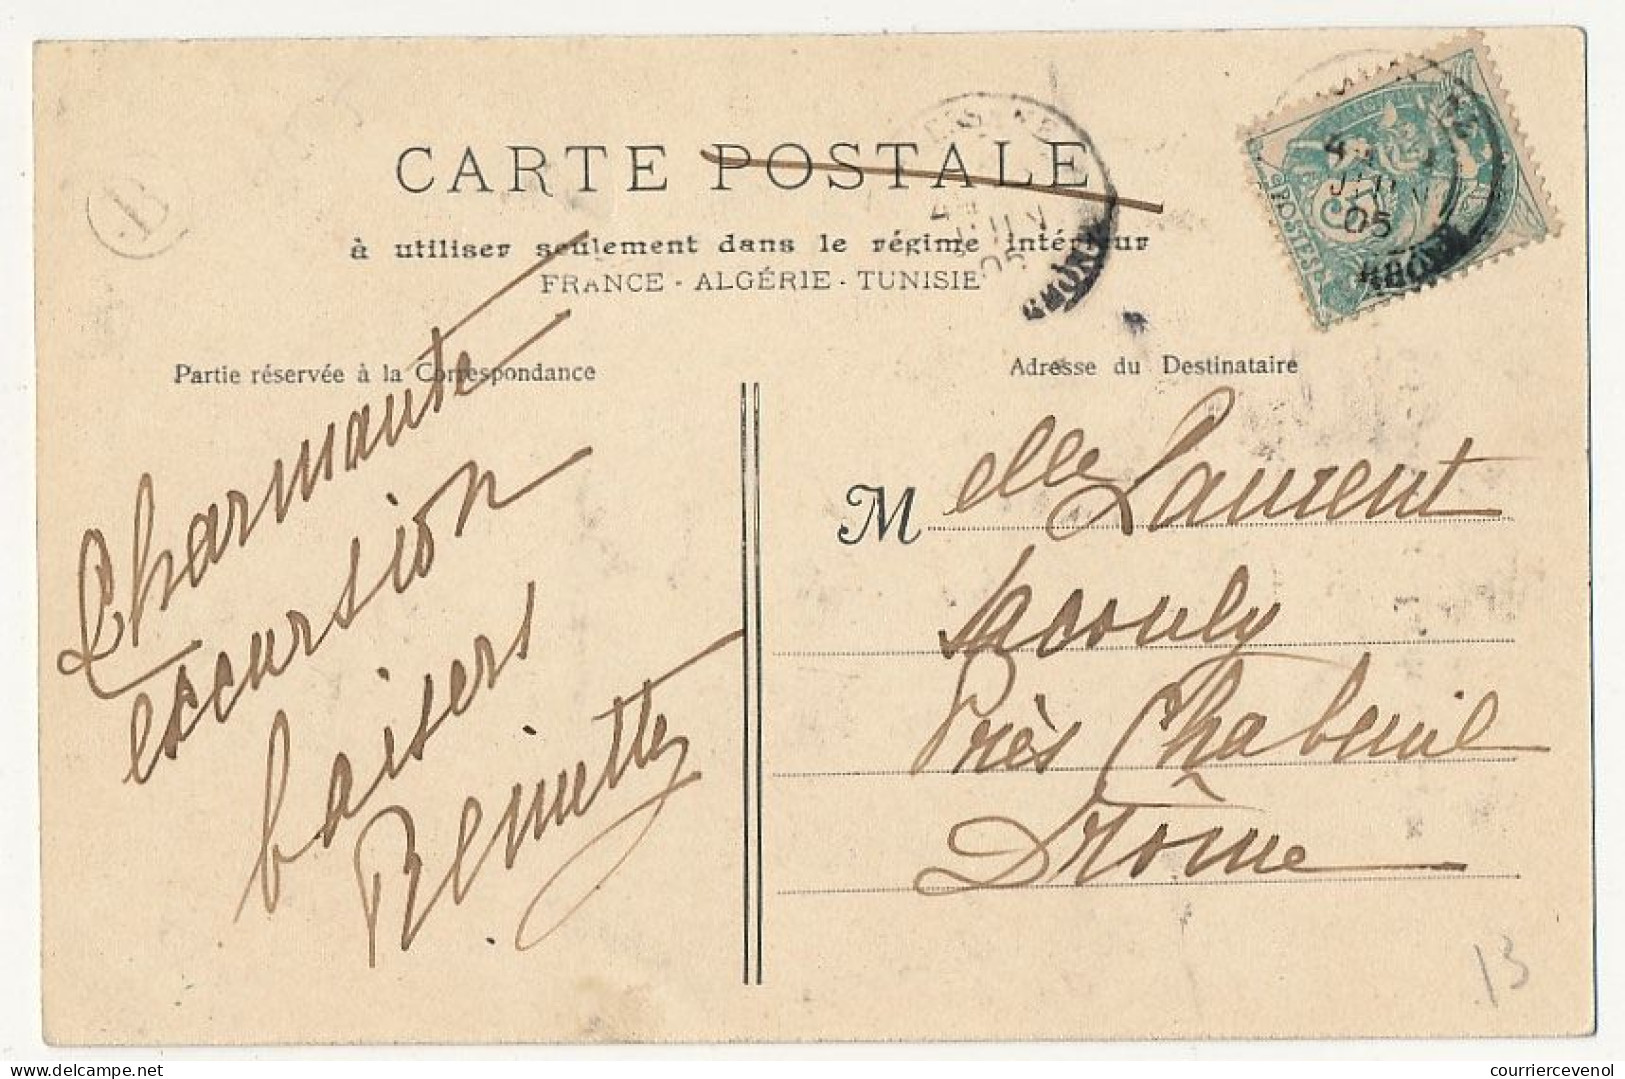 CARTE POSTALE
à utiliser seulement dans le régime intérieur
FRANCE - ALGÉRIE - TUNISIE
B
4
JUIN
05
RHÔNE
4
JUIN
05
RHÔNE
POSTES
Partie réservée à la Correspondance
Charmante
excursion
baisers
Adresse du Destinataire
Melle Laurent
Près Chabeuil
Drôme
13
courriercevenol